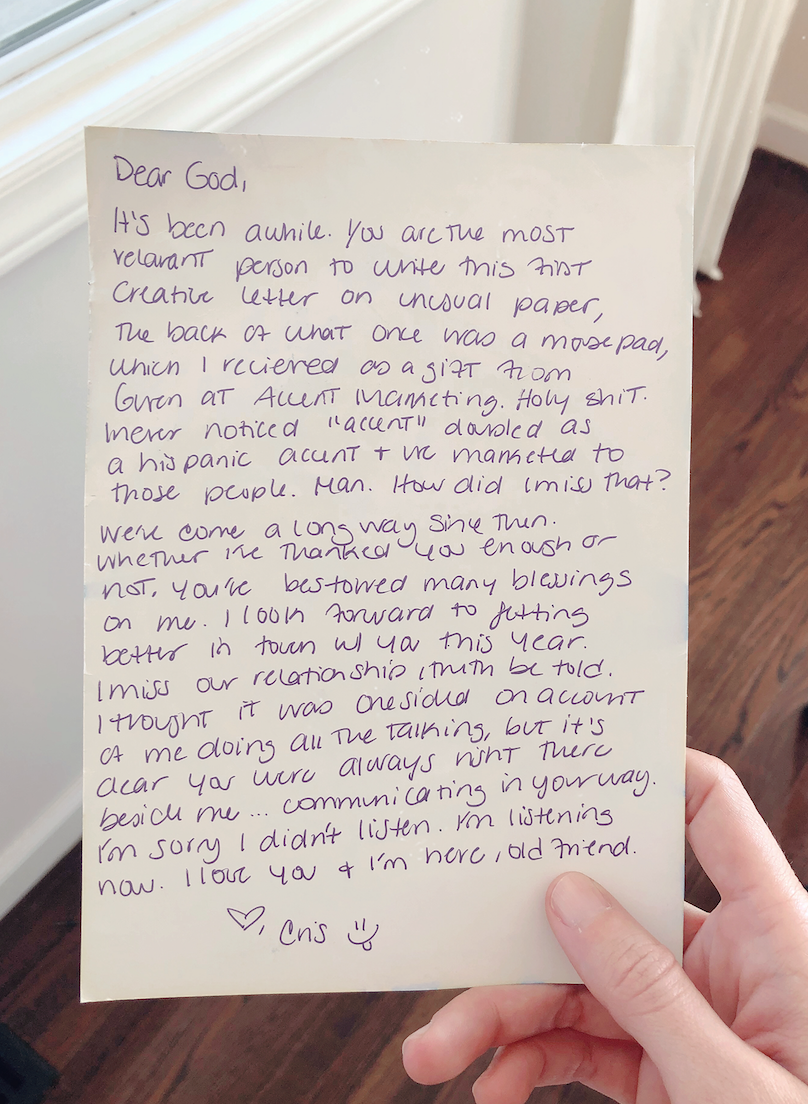 Dear God,
It's been awhile. You are the most
relavant person to write this first
Creative letter on unusual paper,
The back of what once was a mousepad,
which I recieved as a gift from
Gwen at Accent Marketing. Holy shit.
I never noticed "accent" doubled as
a hispanic accent + we marketed to
those people. Man. How did I miss that?
We've come a long way since then.
Whether I've thanked you enough or
not, you've bestowed many blessings
on me. I look forward to getting
better in touch w/ you this year.
I miss our relationship, truth be told.
I thought it was onesided on account
of me doing all the talking, but it's
clear you were always right there
beside me... communicating in your way.
I'm sorry I didn't listen. I'm listening
now. I love you + I'm here, old friend.
♡, Cris